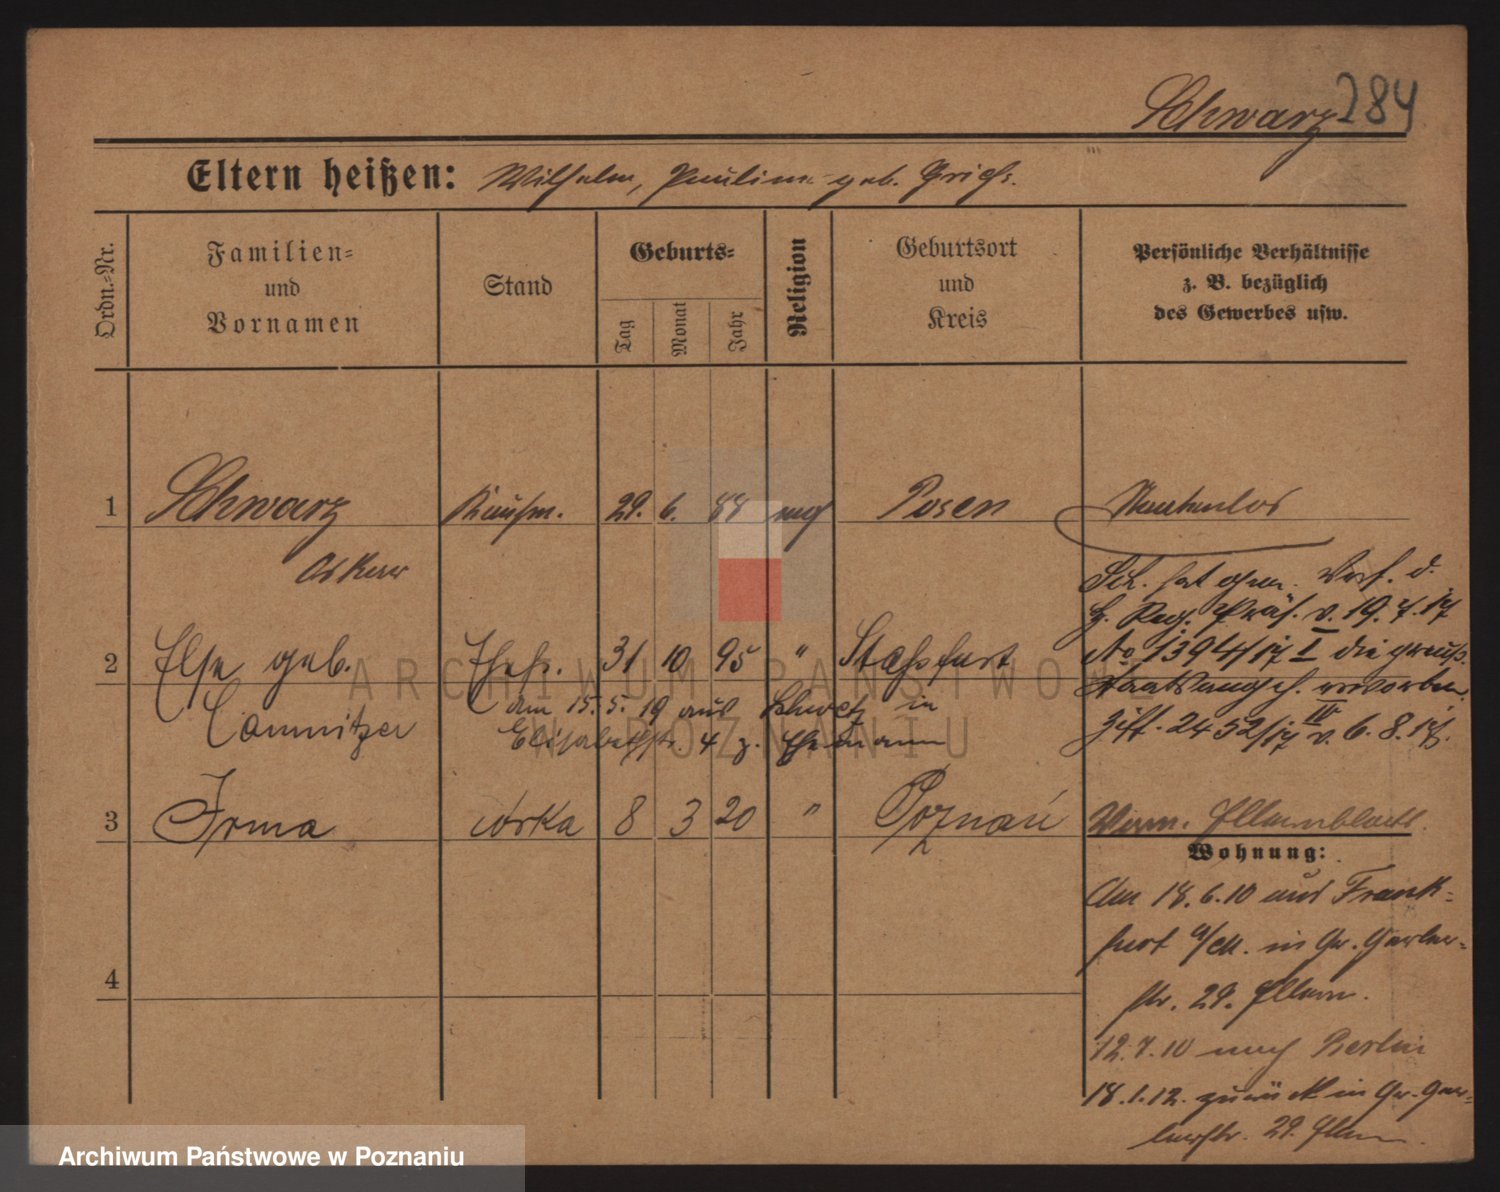 Schwarz 284
Eltern heißen: Wilhelm, Pauline geb.
Ordn.-Nr.
Familien-
und
Vornamen
Stand
Geburts-
Tag
Monat
Jahr
Religion
Geburtsort
und
Kreis
Persönliche Verhältnisse
z. B. bezüglich
des Gewerbes usw.
1 Schwarz Kaufm. 29. 6. 88 Posen
Oskar
Sch. hat gem. Verf. d.
H. Reg. Präs. v. 19. 7. 17
No 1394/17 I die preuß.
2 Else geb. Ehefr. 31 10 95 " Stassfurt
Staatsangeh. erworben.
Comnitzer am 15. 5. 19 aus in
Elisabethstr. 4 z. Ehemann
Zift. 2452/17 IV v. 6. 8. 17.
3 Irma córka 8 3 20 " Poznań
Verm. Elternblatt.
Wohnung:
Am 18. 6. 10 aus Frank-
furt a/M. in Gr. Gerber-
str. 29. Eltern.
4
12. 7. 10 nach Berlin
18. 1. 12. zurück in Gr. Ger-
berstr. 29. Eltern.
ARCHIWUM PAŃSTWOWE
W POZNANIU
Archiwum Państwowe w Poznaniu